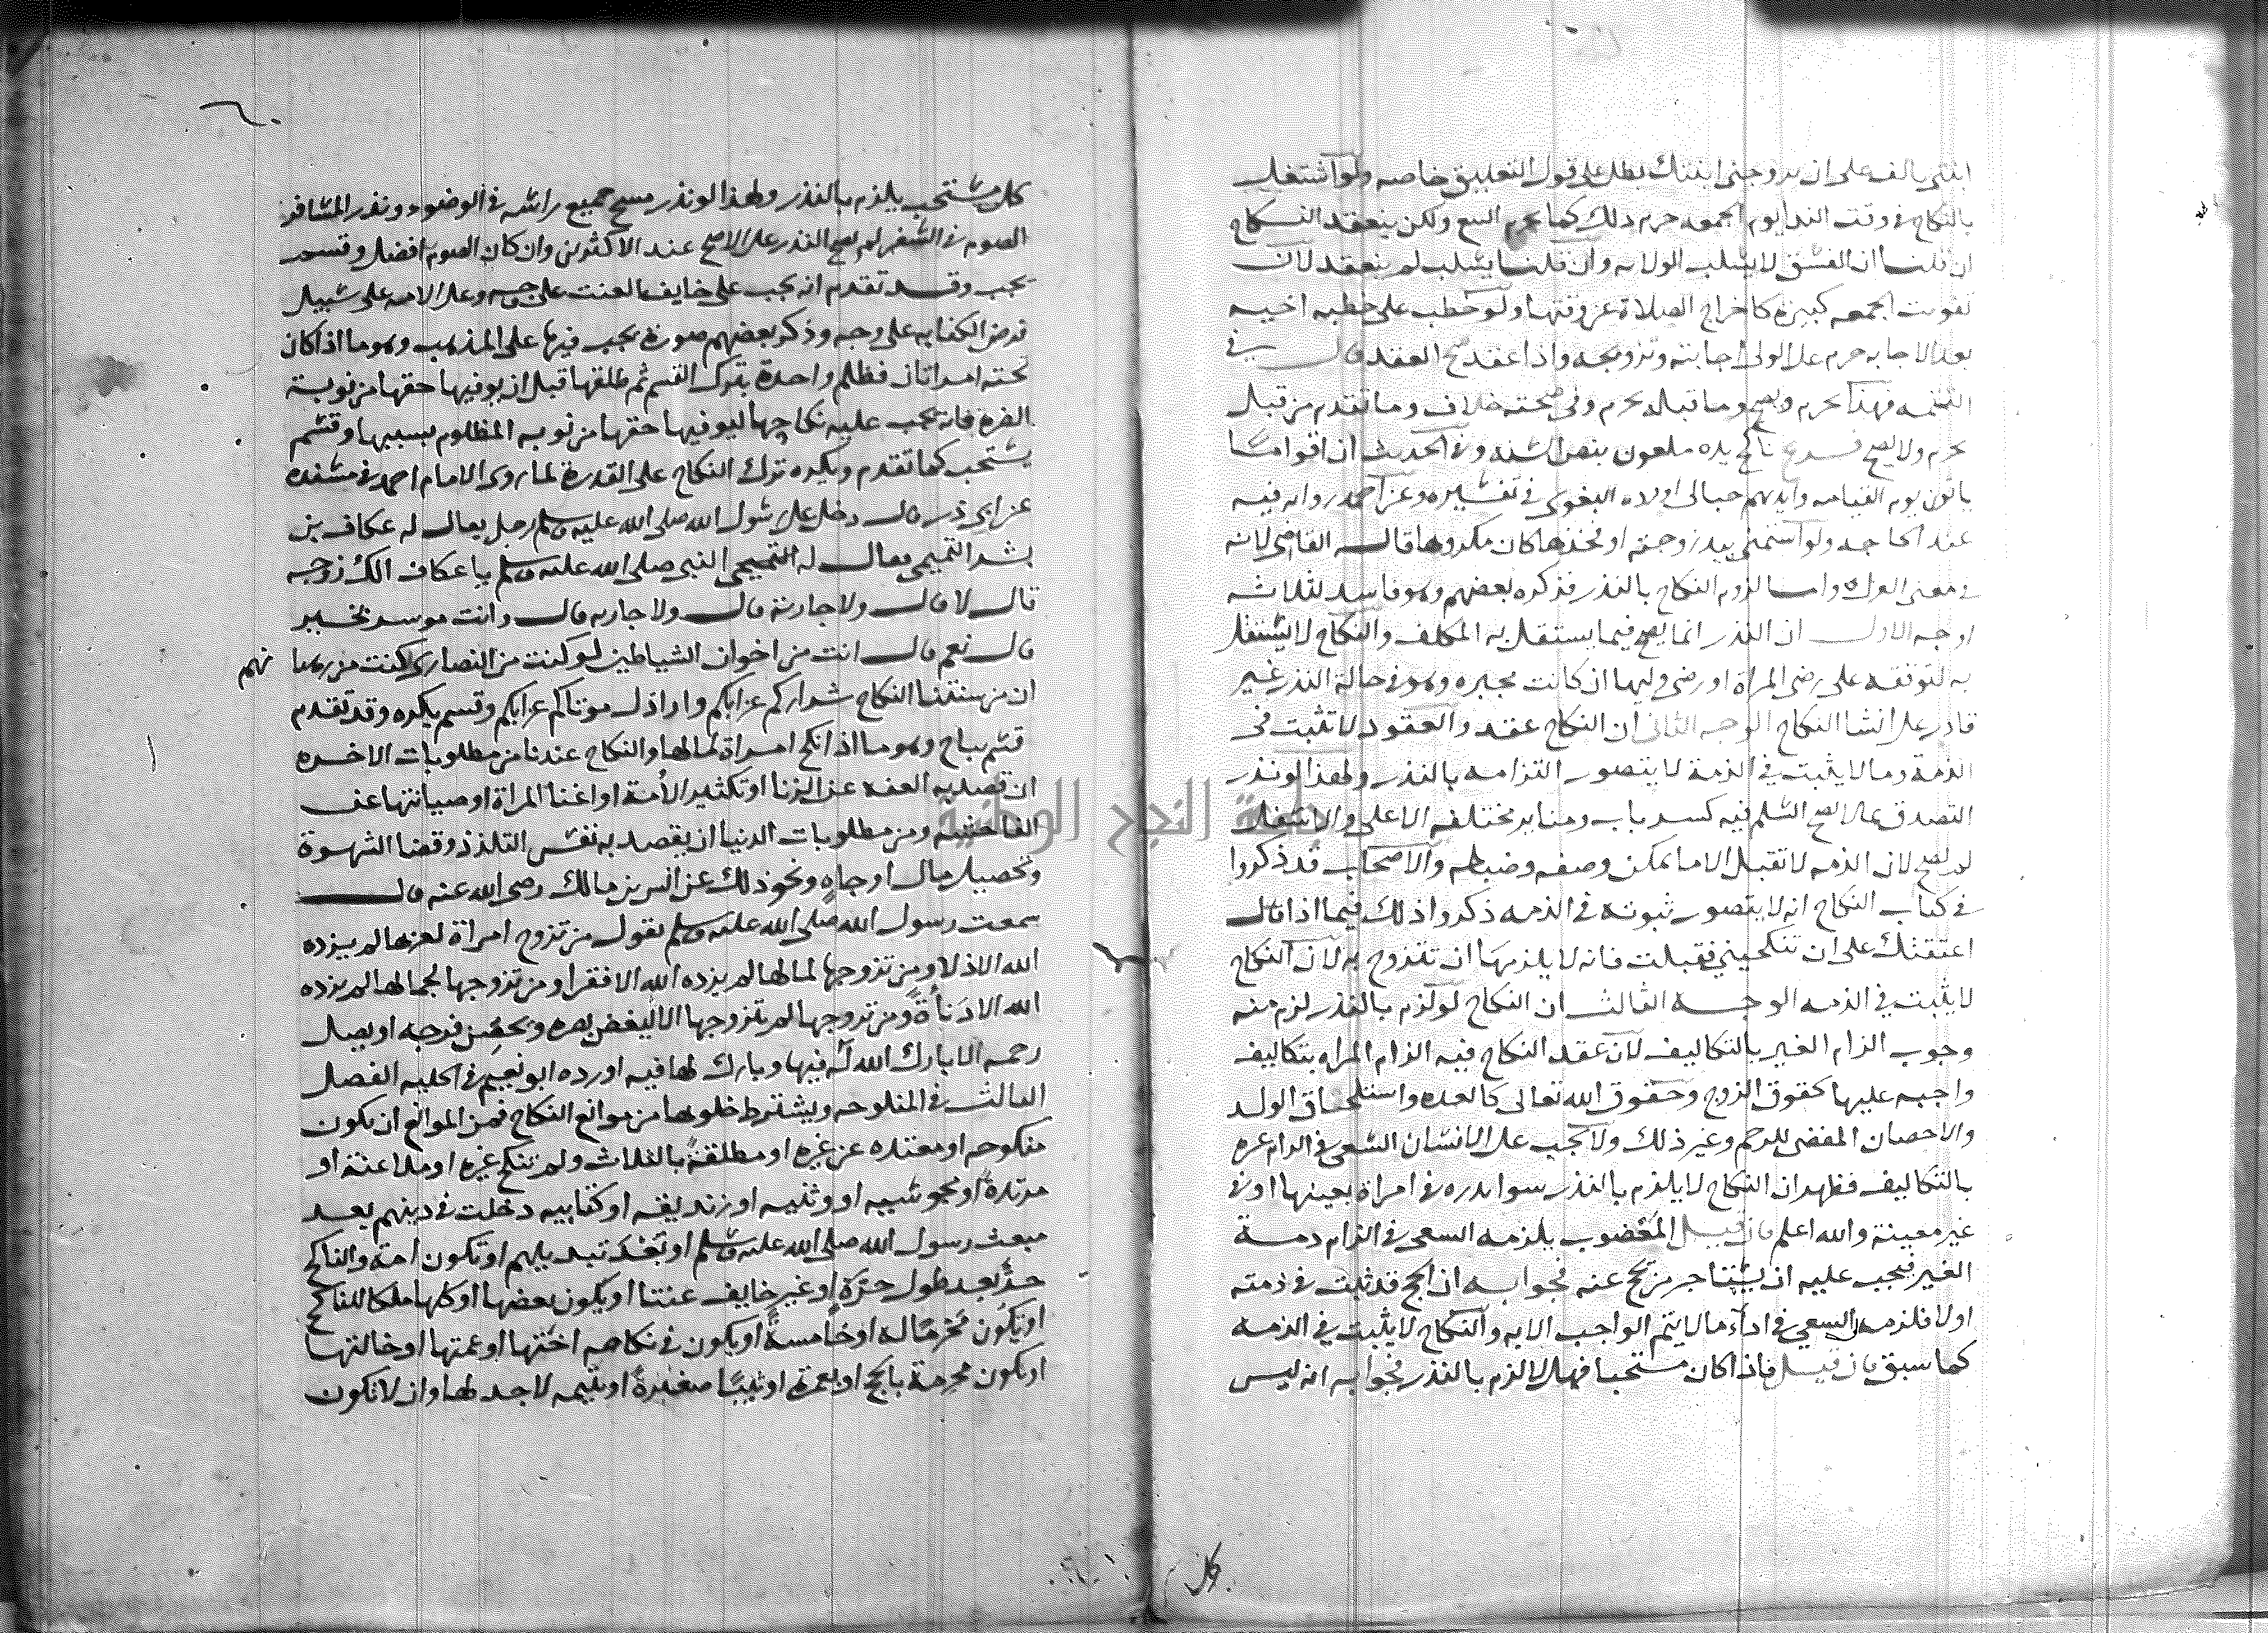 ابنتى بالف على ان تزوجنى ابنتك بطل على قول التعليق خاصه ولو اشتغل
بالنكاح فى وقت الندا يوم الجمعه حرم ذلك كما يحرم البيع ولكن ينعقد النكاح
ان قلنا ان الفسق لا يسلب الولايه وان قلنا يسلب لم ينعقد لان
تفويت الجمعه كبيرة كاخراج الصلاة عن وقتها ولو خطب على خطبه اخيه
بعد الاجابه حرم على الولى اجابته وتزويجه واذا عقد صح العقد قال فى
التتمه فهذا يحرم ويصح وما قبله يحرم وفى صحته خلاف وما تقدم من قبل
يحرم ولا يصح فرع ناكح يده ملعون بنص السنه وفى الحديث ان اقواما
ياتون يوم القيامه وايديهم حبالى اورده البغوى فى تفسيره وعن احمد روايه فيه
عند الحاجه ولو استمنى بيد زوجته او فخذها كان مكروها قاله القاضى لانه
فى معنى العزل واما لزوم النكاح بالنذر فذكره بعضهم وهو فاسد لثلاثه
اوجه الاول ان النذر انما يصح فيما يستقل به المكلف والنكاح لا يستقل
به لتوقفه على رضى المراة او رضى وليها ان كانت مجبره وهو فى حالة النذر غير
قادر على انشا النكاح الوجه الثانى ان النكاح عقد والعقود لا تثبت فى
الذمة وما لا يثبت فى الذمة لا يتصور التزامه بالنذر ولهذا لو نذر
التصدق بما لا يصح السلم فيه كسد باب ومنابر مختلفه الاعلى والاسفل
لم يصح لان الذمه لا تقبل الا ما يمكن وصفه وضبطه والاصحاب قد ذكروا
فى كتاب النكاح انه لا يتصور ثبوته فى الذمه ذكروا ذلك فيما اذا قال
اعتقتك على ان تنكحينى فقبلت فانه لا يلزمها ان تتزوج به لان النكاح
لا يثبت فى الذمه الوجه الثالث ان النكاح لو لزم بالنذر لزم منه
وجوب الزام الغير بالتكاليف لان عقد النكاح فيه الزام المراه بتكاليف
واجبه عليها كحقوق الزوج وحقوق الله تعالى كالعده واستلحاق الولد
والاحصان المفضى للرجم وغير ذلك ولا يجب على الانسان السعى فى الزام غيره
بالتكاليف فظهر ان النكاح لا يلزم بالنذر سوا نذره فى امراة بعينها او فى
غير معينة والله اعلم فان قيل المغضوب يلزمه السعى فى الزام ذمة
الغير فيجب عليه ان يستاجر من يحج عنه فجوابه ان الحج قد ثبت فى ذمته
اولا فلزمه السعى فى اداء ما لا يتم الواجب الا به والنكاح لا يثبت فى الذمه
كما سبق فان قيل فاذا كان مستحبا فهلا لزم بالنذر فجوابه انه ليس
كل
كل مستحب يلزم بالنذر ولهذا لو نذر مسح جميع راسه فى الوضوء ونذر المسافر
الصوم فى السفر لم يصح النذر على الاصح عند الاكثرين وان كان الصوم افضل وقسم
يجب وقد تقدم انه يجب على خايف العنت على وجه وعلى الامه على سبيل
فرض الكفايه على وجه وذكر بعضهم صورة يجب فيها على المذهب وهو ما اذا كان
تحته امراتان فظلم واحدة بترك القسم ثم طلقها قبل ان يوفيها حقها من نوبة
الضره فانه يجب عليه نكاحها ليوفيها حقها من نوبه المظلوم بسببها وقسم
يستحب كما تقدم ويكره ترك النكاح على القدرة لما روى الامام احمد فى مسنده
عن ابى ذر قال دخل على رسول الله صلى الله عليه وسلم رجل يقال له عكاف بن
بشر التميمى فقال له النبى صلى الله عليه وسلم يا عكاف الك زوجه
قال لا قال ولا جارية قال ولا جاريه قال وانت موسر بخير
قال نعم قال انت من اخوان الشياطين لو كنت من النصارى كنت من رهبا نهم
ان من سنتنا النكاح شراركم عزابكم واراذل موتاكم عزابكم وقسم يكره وقد تقدم
قسم يباح وهو ما اذا نكح امراة لمالها والنكاح عندنا من مطلوبات الاخره
ان قصد به العفه عن الزنا او تكثير الأمة او اغنا المراة او صيانتها عن
الفاحشه ومن مطلوبات الدنيا ان يقصد به نفس التلذذ وقضا الشهوة
وتحصيل مال او جاهٍ ونحو ذلك عن انس بن مالك رضى الله عنه قال
سمعت رسول الله صلى الله عليه وسلم يقول من تزوج امراة لعزها لم يزده
الله الا ذلا ومن تزوجها لمالها لم يزده الله الا فقرا ومن تزوجها لجمالها لم يزده
الله الا دَنأةً ومن تزوجها لم يتزوجها الا ليغض بصره ويحصِن فرجه او يصل
رحمه الا بارك الله لَه فيها وبارك لها فيه اورده ابو نعيم فى الحليه الفصل
الثالث فى المنكوحه ويشترط خلوها من موانع النكاح فمن الموانع ان تكون
منكوحه او معتده عن غيره او مطلقةً بالثلاث ولم تنكح غيره او ملاعنة او
مرتدةً او مجوسيه او وثنيه او زنديقه او كتابيه دخلت فى دينهم بعد
مبعث رسول الله صلى الله عليه وسلم او بَعْدَ تبديلهم او تكون امة والناكح
حرٌ بعد طول حرّة او غير خايف عنتا او يكون بعضها او كلها ملكا للناكح
او يكون مَحْرمًا له او خامسةً او يكون فى نكاحه اختها او عمتها او خالتها
او تكون محرِمة بالحج او بعمرة او ثيبًا صغيرةً او يتيمه لا جد لها وان لا تكون
جامعة النجاح الوطنية